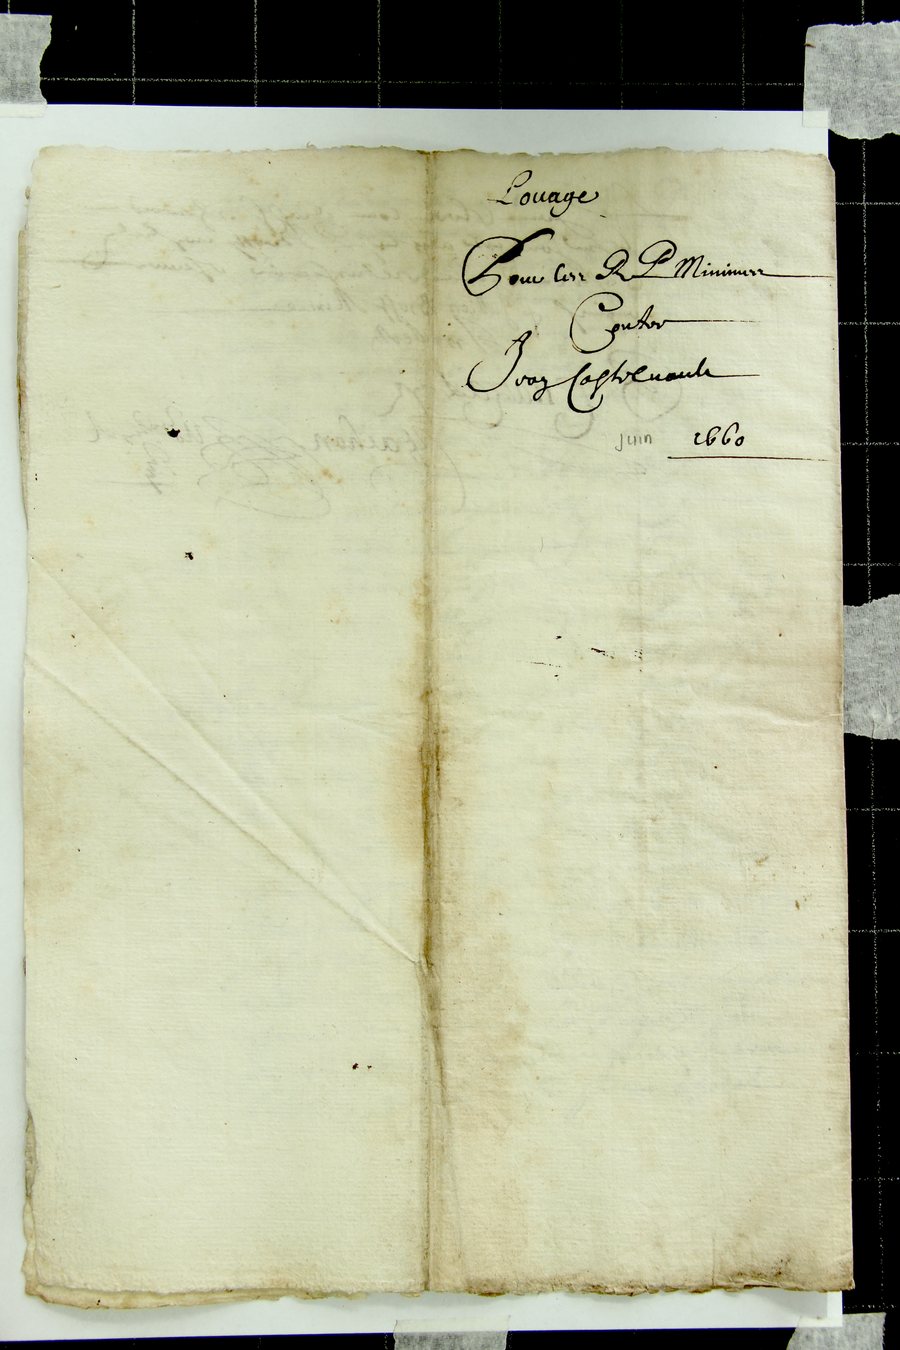 Louage
Pour les R P Minimes
Contre
Jean Castelnault
juin 1660